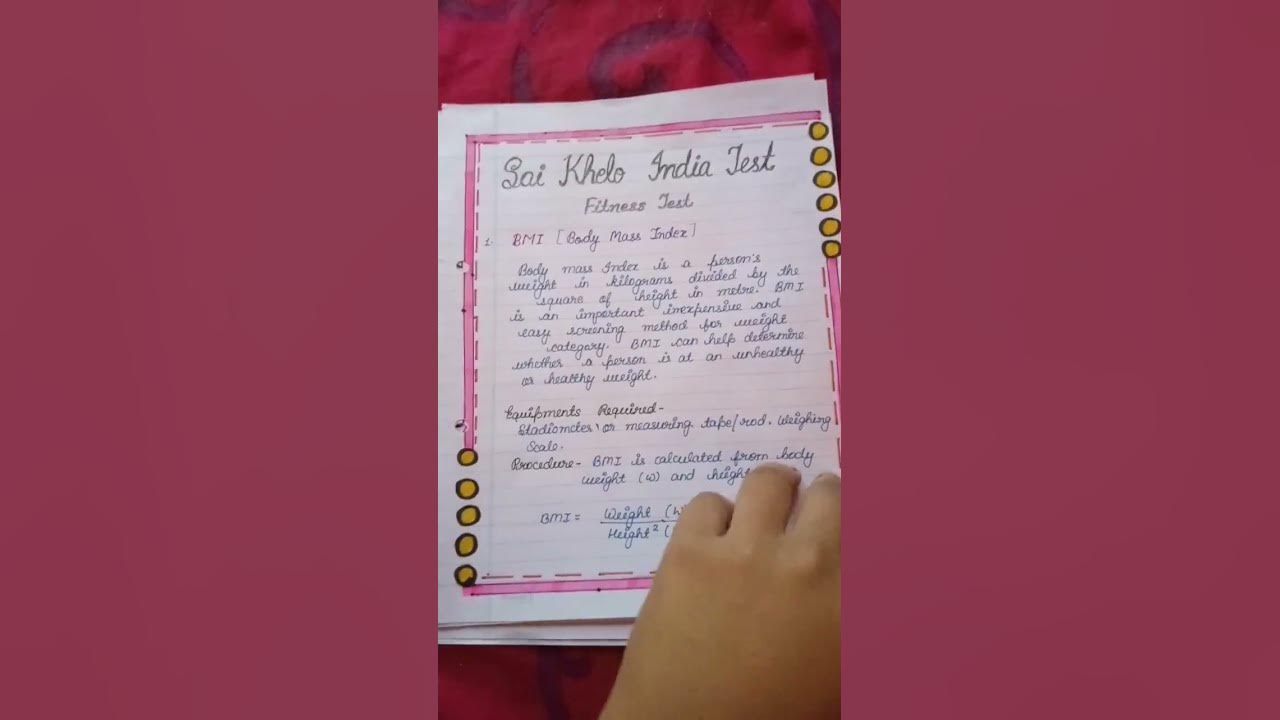 Sai Khelo India Test
Fitness Test
1. BMI [Body Mass Index]
Body mass Index is a person's
weight in kilograms divided by the
square of height in metre. BMI
is an important inexpensive and
easy screening method for weight
category. BMI can help determine
whether a person is at an unhealthy
or healthy weight.
Equipments Required-
Stadiometer or measuring tape/rod. Weighing
Scale.
Procedure- BMI is calculated from body
weight (w) and height
BMI = Weight (
Height² (